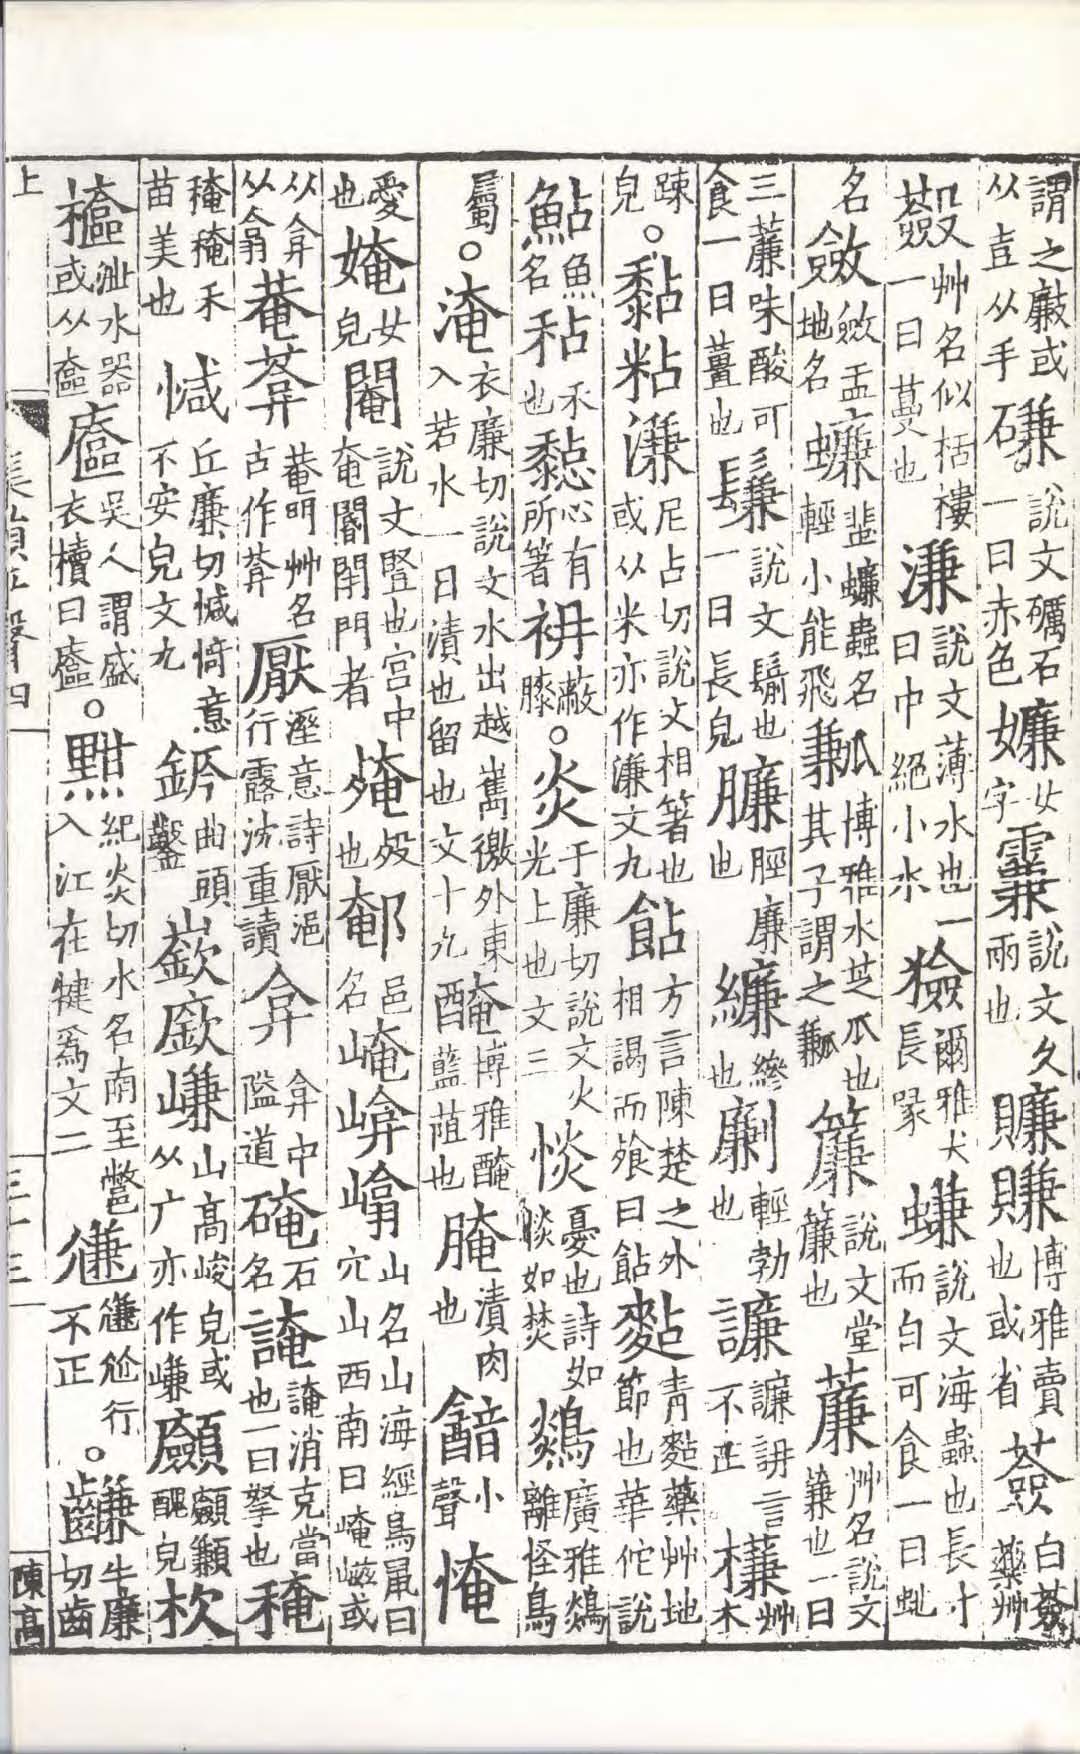 謂之㢘或从壴从手磏說文礪石一曰赤色嬚女字䨬說文久雨也𧸖賺博雅賣也或省薟白薟藥艸
蘞艸名似栝樓一曰蔓也溓說文薄水也一曰中絕小水獫爾雅犬長喙蠊說文海蟲也長寸而白可食一曰虵
名㪘㪘盂地名蠊蜚蠊蟲名輕小能飛𤬓博雅水芝瓜也其子謂之𤬓簾說文堂簾也薕艸名說文蒹也一曰
三薕味酸可食一曰薑也鬑說文鬋也一曰長皃臁脛臁也縑縿也㔋輕勃也譧譧詽言不正槏艸木
踈皃。黏粘溓尼占切說文相箸也或从米亦作溓文九䬯方言陳楚之外相謁而飧曰䬯䴴青䴴藥艸地節也華佗說
鮎魚名秥禾也心有所箸袡蔽膝。炎于廉切說文火光上也文三惔憂也詩如惔如焚鴆廣雅鴆離怪鳥
屬。淹衣廉切說文水出越巂徼外東入若水一曰漬也留也文十九醃博雅醃藍葅也腌漬肉也韽小聲俺
愛也媕女皃閹說文豎也宮中奄閽閉門者殗歿也郁邑名崦嵃山名山海經鳥鼠曰穴山西南曰崦嵫或
从弇从翕菴葊菴䕡艸名古作葊厭溼意詩厭浥行露沈重讀弇弇中隘道硽石名諳諳消克當也一曰拏也䅖
䅖䅖禾苗美也𢜩丘廉切𢜩㥓意不安皃文九釿曲頭鑿嶔廞嵰山高峻皃或从广亦作嵰顩顩顲醜皃杴
㯺㴉水器或从匳匳吳人謂盛衣櫝曰匳。黚紀炎切水名南至鄨入江在犍爲文二尲尲尬行不正。𪙊牛廉切齒
上
集韻平聲四
三十三
陳高